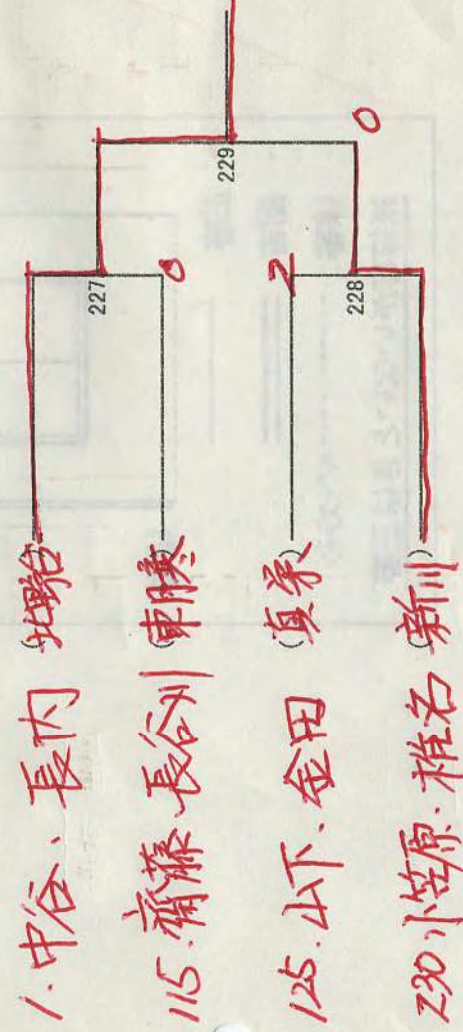 1. 中谷、長内 (北野台)
115. 齋藤、長谷川 (東陵)
125. 山下、金田 (真栄)
230 小笠原、椎名 (新川)
227
0
2
228
229
0